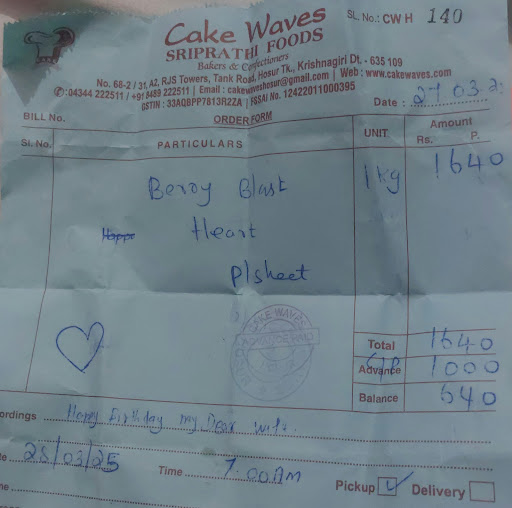 SL. No.: CW H 140
Cake Waves
SRIPRATHI FOODS
Bakers & Confectioners
No. 68-2 / 31, A2, RJS Towers, Tank Road, Hosur Tk., Krishnagiri Dt. - 635 109
✆: 04344 222511 / +91 8489 222511 | Email : cakewaveshosur@gmail.com | Web : www.cakewaves.com
GSTIN : 33AQBPP7813R2ZA | FSSAI No. 12422011000395
Date : 27 03 2
BILL No.
ORDER FORM
Sl. No. PARTICULARS UNIT Amount
Rs. P.
Berry Blast 1 kg 1640
Happy Heart
P/sheet
CAKE WAVES
Total 1640
Advance GP 1000
Balance 640
ordings Happy Birthday my Dear wife.
te 28/03/25 Time 7.00AM
Pickup Delivery
me